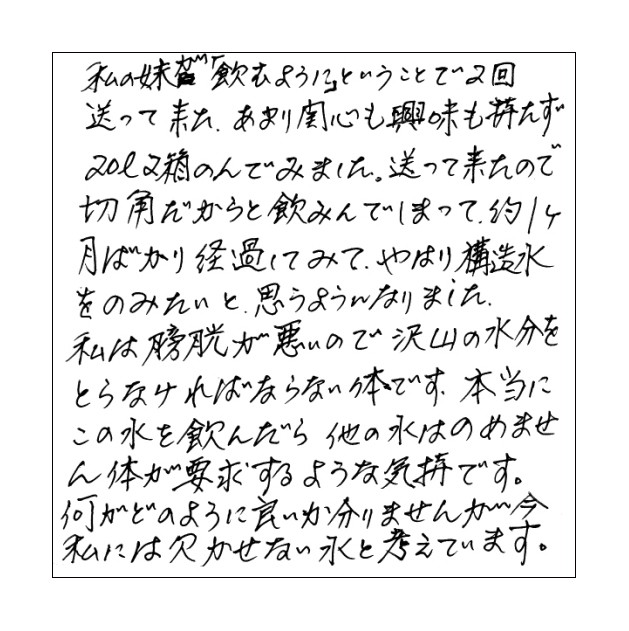 私の妹が「飲むように」ということで2回
送って来た。あまり関心も興味も持たず
20ℓ2箱のんでみました。送って来たので
切角だからと飲みんでしまって、約1ヶ
月ばかり経過してみて、やはり構造水
をのみたいと、思うようになりました。
私は膀胱が悪いので沢山の水分を
とらなければならない体です。本当に
この水を飲んだら他の水はのめませ
ん体が要求するような気持です。
何がどのように良いか分りませんが今
私には欠かせない水と考えています。